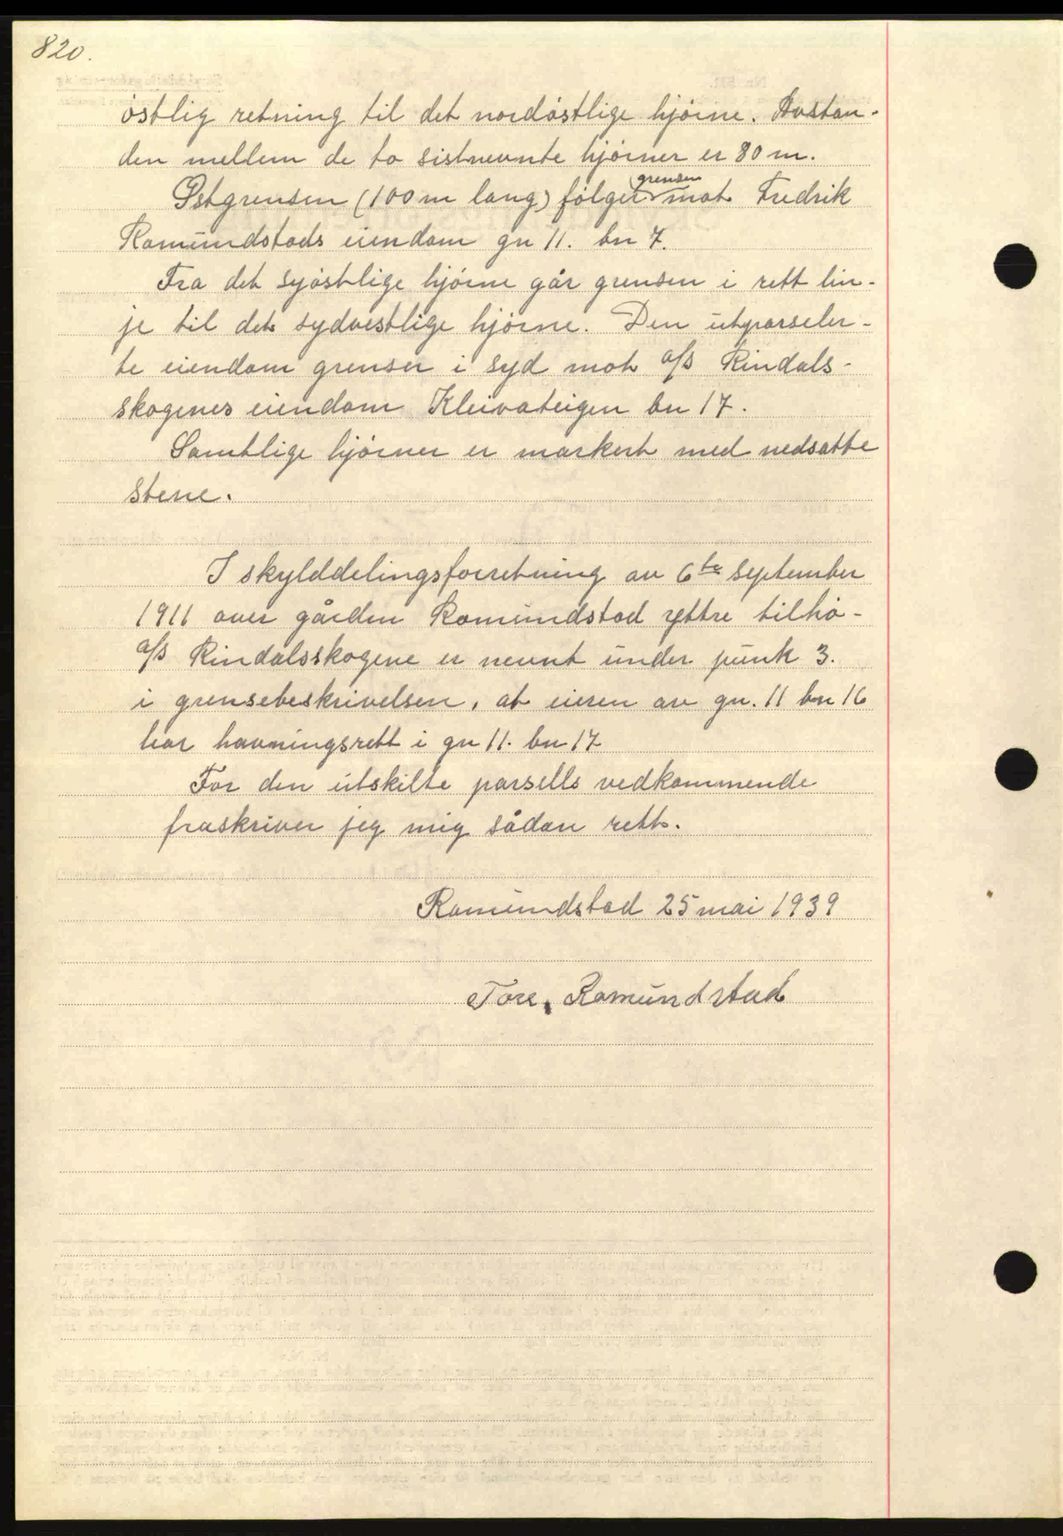 820.
østlig retning til det nordøstlige hjørne. Avstan-
den mellem de to sistnevnte hjørner er 80 m.
Østgrensen (100 m lang) følger grensen mot Fredrik
Romundstads eiendom gn 11. bn 7.
Fra det syøstlige hjørne går grensen i rett lin-
je til det sydvestlige hjørne. Den utparseler-
te eiendom grenser i syd mot a/s Rindals-
skogenes eiendom Kleivateigen bn 17.
Samtlige hjørner er markert med nedsatte
stene.
I skylddelingsforretning av 6te september
1911 over gården Romundstad yttre tilhø-
a/s Rindalsskogene er nevnt under punk 3.
i grensebeskrivelsen, at eieren av gn. 11 bn 16
har havningsrett i gn 11. bn 17
For den utskilte parsells vedkommende
fraskriver jeg mig sådan rett.
Romundstad 25 mai 1939
Tore Romundstad